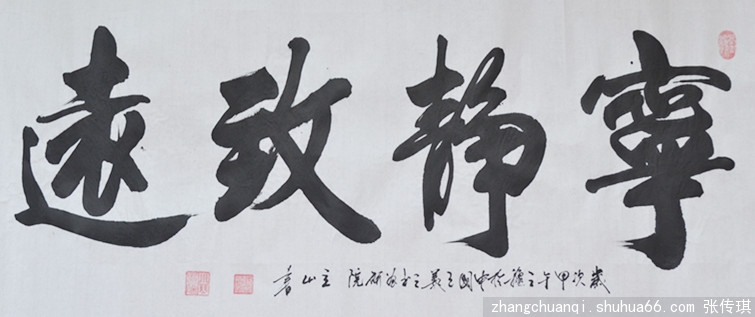 寧静致遠
歲次甲午於中國王羲之書畫研院 立山書
zhangchuanqi.shuhua66.com 张传琪